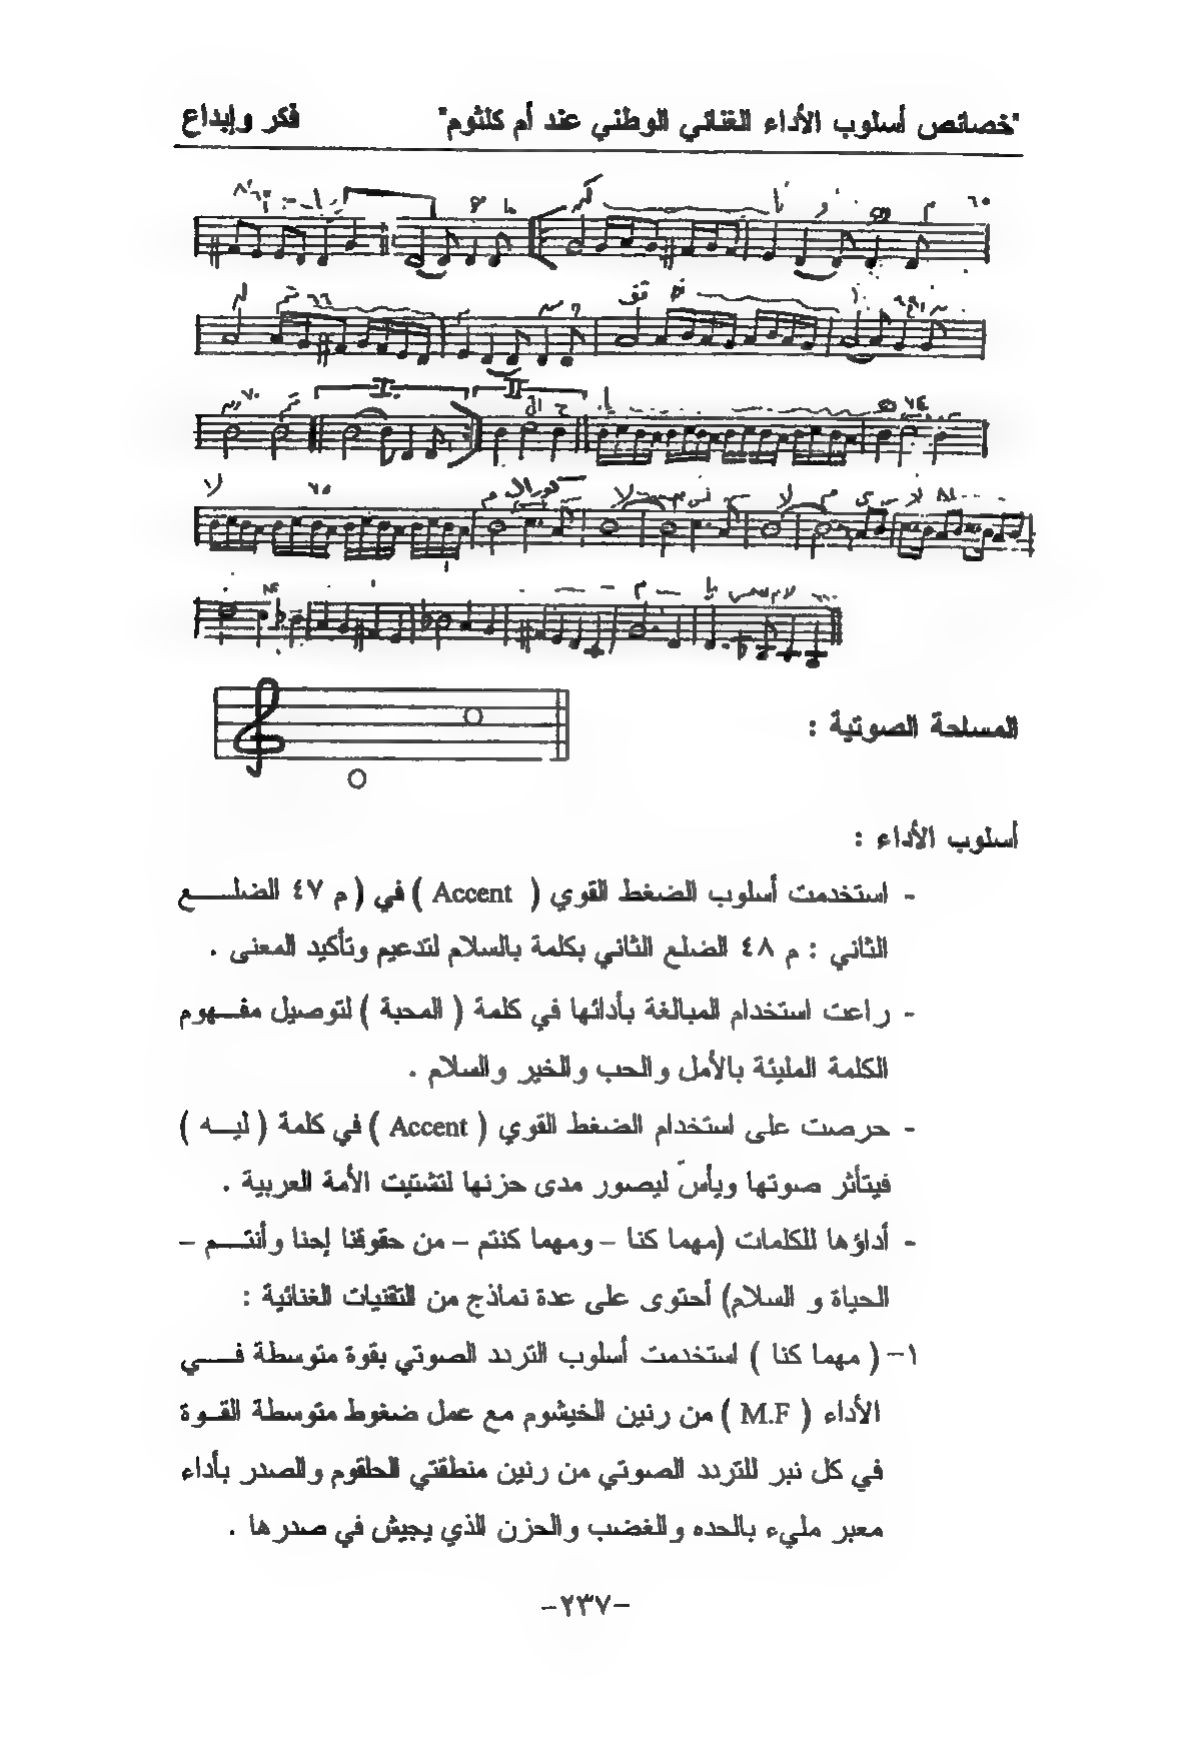 "خصائص أسلوب الأداء الغنائي الوطني عند أم كلثوم" فكر وإبداع
المساحة الصوتية :
أسلوب الأداء :
- استخدمت أسلوب الضغط القوي ( Accent ) في ( م ٤٧ الضلـــــع
الثاني : م ٤٨ الضلع الثاني بكلمة بالسلام لتدعيم وتأكيد المعنى .
- راعت استخدام المبالغة بأدائها في كلمة ( المحبة ) لتوصيل مفـــهوم
الكلمة المليئة بالأمل والحب والخير والسلام .
- حرصت على استخدام الضغط القوي ( Accent ) في كلمة ( ليـــه )
فيتأثر صوتها ويأسّ ليصور مدى حزنها لتشتيت الأمة العربية .
- أداؤها للكلمات (مهما كنا – ومهما كنتم – من حقوقنا إحنا وأنتــــم –
الحياة و السلام) أحتوى على عدة نماذج من التقنيات الغنائية :
١- ( مهما كنا ) استخدمت أسلوب التردد الصوتي بقوة متوسطة فــــي
الأداء ( M.F ) من رنين الخيشوم مع عمل ضغوط متوسطة القــوة
في كل نبر للتردد الصوتي من رنين منطقتي الحلقوم والصدر بأداء
معبر مليء بالحده والغضب والحزن الذي يجيش في صدرها .
-٢٣٧-